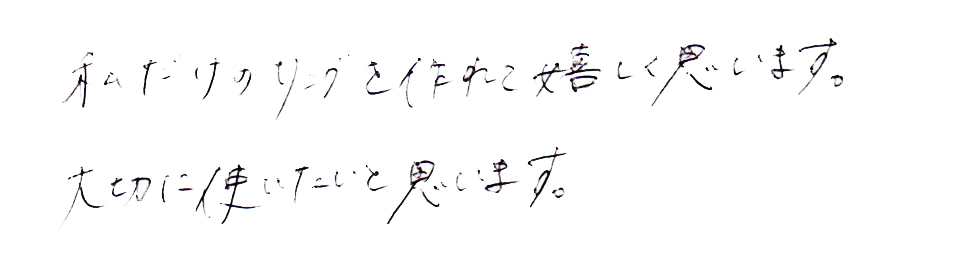 私だけのリングを作れて嬉しく思います。
大切に使いたいと思います。